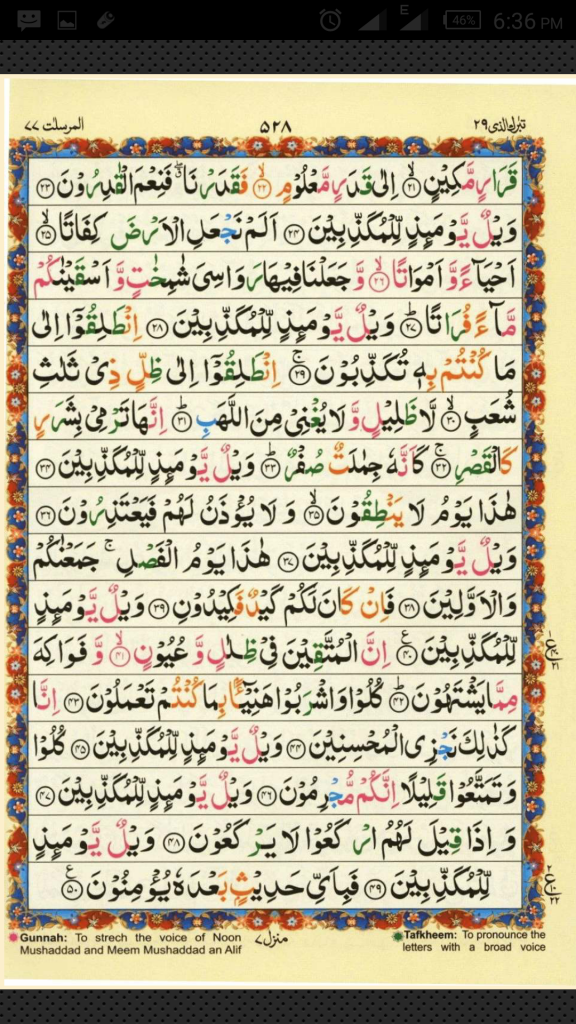 E 46% 6:36 PM
تبٰرك الذی ٢٩ ٥٢٨ المرسلت ٧٧
قَرَارٍ مَّكِيْنٍ ۙ‏﴿۲۱﴾ اِلٰى قَدَرٍ مَّعْلُوْمٍۙ‏ ﴿۲۲﴾ فَقَدَرْنَا ۖ فَنِعْمَ الْقٰدِرُوْنَ‏ ﴿۲۳﴾
وَيْلٌ يَّوْمَٮِٕذٍ لِّلْمُكَذِّبِيْنَ‏ ﴿۲۴﴾ اَلَمْ نَجْعَلِ الْاَرْضَ كِفَاتًا ۙ‏ ﴿۲۵﴾
اَحْيَآءً وَّاَمْوَاتًا ۙ‏ ﴿۲۶﴾ وَّجَعَلْنَا فِيْهَا رَوَاسِىَ شٰمِخٰتٍ وَّ اَسْقَيْنٰكُمْ
مَّآءً فُرَاتًا ؕ‏ ﴿۲۷﴾ وَيْلٌ يَّوْمَٮِٕذٍ لِّلْمُكَذِّبِيْنَ‏ ﴿۲۸﴾ اِنْطَلِقُوْۤا اِلٰى
مَا كُنْتُمْ بِهٖ تُكَذِّبُوْنَ‌ ۚ‏ ﴿۲۹﴾ اِنْطَلِقُوْۤا اِلٰى ظِلٍّ ذِىْ ثَلٰثِ
شُعَبٍ ۙ‏ ﴿۳۰﴾ لَّا ظَلِيْلٍ وَّلَا يُغْنِىْ مِنَ اللَّهَبِؕ‏ ﴿۳۱﴾ اِنَّهَا تَرْمِىْ بِشَرَرٍ
كَالْقَصْرِ‌ۚ‏ ﴿۳۲﴾ كَاَنَّهٗ جِمٰلَتٌ صُفْرٌ ؕ‏ ﴿۳۳﴾ وَيْلٌ يَّوْمَٮِٕذٍ لِّلْمُكَذِّبِيْنَ‏ ﴿۳۴﴾
هٰذَا يَوْمُ لَا يَنْطِقُوْنَۙ‏ ﴿۳۵﴾ وَلَا يُؤْذَنُ لَهُمْ فَيَعْتَذِرُوْنَ‏ ﴿۳۶﴾
وَيْلٌ يَّوْمَٮِٕذٍ لِّلْمُكَذِّبِيْنَ‏ ﴿۳۷﴾ هٰذَا يَوْمُ الْفَصْلِ‌ۚ جَمَعْنٰكُمْ
وَالْاَوَّلِيْنَ‏ ﴿۳۸﴾ فَاِنْ كَانَ لَكُمْ كَيْدٌ فَكِيْدُوْنِ‏ ﴿۳۹﴾ وَيْلٌ يَّوْمَٮِٕذٍ
لِّلْمُكَذِّبِيْنَ ﴿۴۰﴾ ع اِنَّ الْمُتَّقِيْنَ فِىْ ظِلٰلٍ وَّعُيُوْنٍۙ‏ ﴿۴۱﴾ وَّفَوَاكِهَ
مِمَّا يَشْتَهُوْنَؕ‏ ﴿۴۲﴾ كُلُوْا وَاشْرَبُوْا هَنِيْٓئًۢا بِمَا كُنْتُمْ تَعْمَلُوْنَ‏ ﴿۴۳﴾ اِنَّا
كَذٰلِكَ نَجْزِى الْمُحْسِنِيْنَ‏ ﴿۴۴﴾ وَيْلٌ يَّوْمَٮِٕذٍ لِّلْمُكَذِّبِيْنَ‏ ﴿۴۵﴾ كُلُوْا
وَتَمَتَّعُوْا قَلِيْلًا اِنَّكُمْ مُّجْرِمُوْنَ‏ ﴿۴۶﴾ وَيْلٌ يَّوْمَٮِٕذٍ لِّلْمُكَذِّبِيْنَ‏ ﴿۴۷﴾
وَاِذَا قِيْلَ لَهُمُ ارْكَعُوْا لَا يَرْكَعُوْنَ‏ ﴿۴۸﴾ وَيْلٌ يَّوْمَٮِٕذٍ
لِّلْمُكَذِّبِيْنَ‏ ﴿۴۹﴾ فَبِاَىِّ حَدِيْثٍۢ بَعْدَهٗ يُؤْمِنُوْنَ ﴿۵۰﴾ ع
منزل ٧
Gunnah: To strech the voice of Noon
Mushaddad and Meem Mushaddad an Alif
Tafkheem: To pronounce the
letters with a broad voice